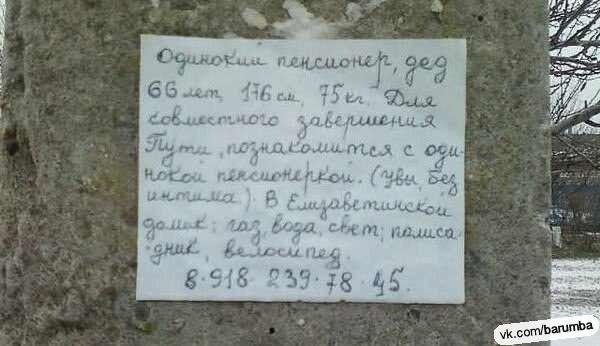 Одинокий пенсионер, дед
66 лет, 176 см, 75 кг. Для
совместного завершения
Пути, познакомится с оди-
нокой пенсионеркой. (увы, без
интима). В Елизаветинской
домик: газ, вода, свет; палиса-
дник, велосипед.
8·918·239·78·45.
vk.com/barumba